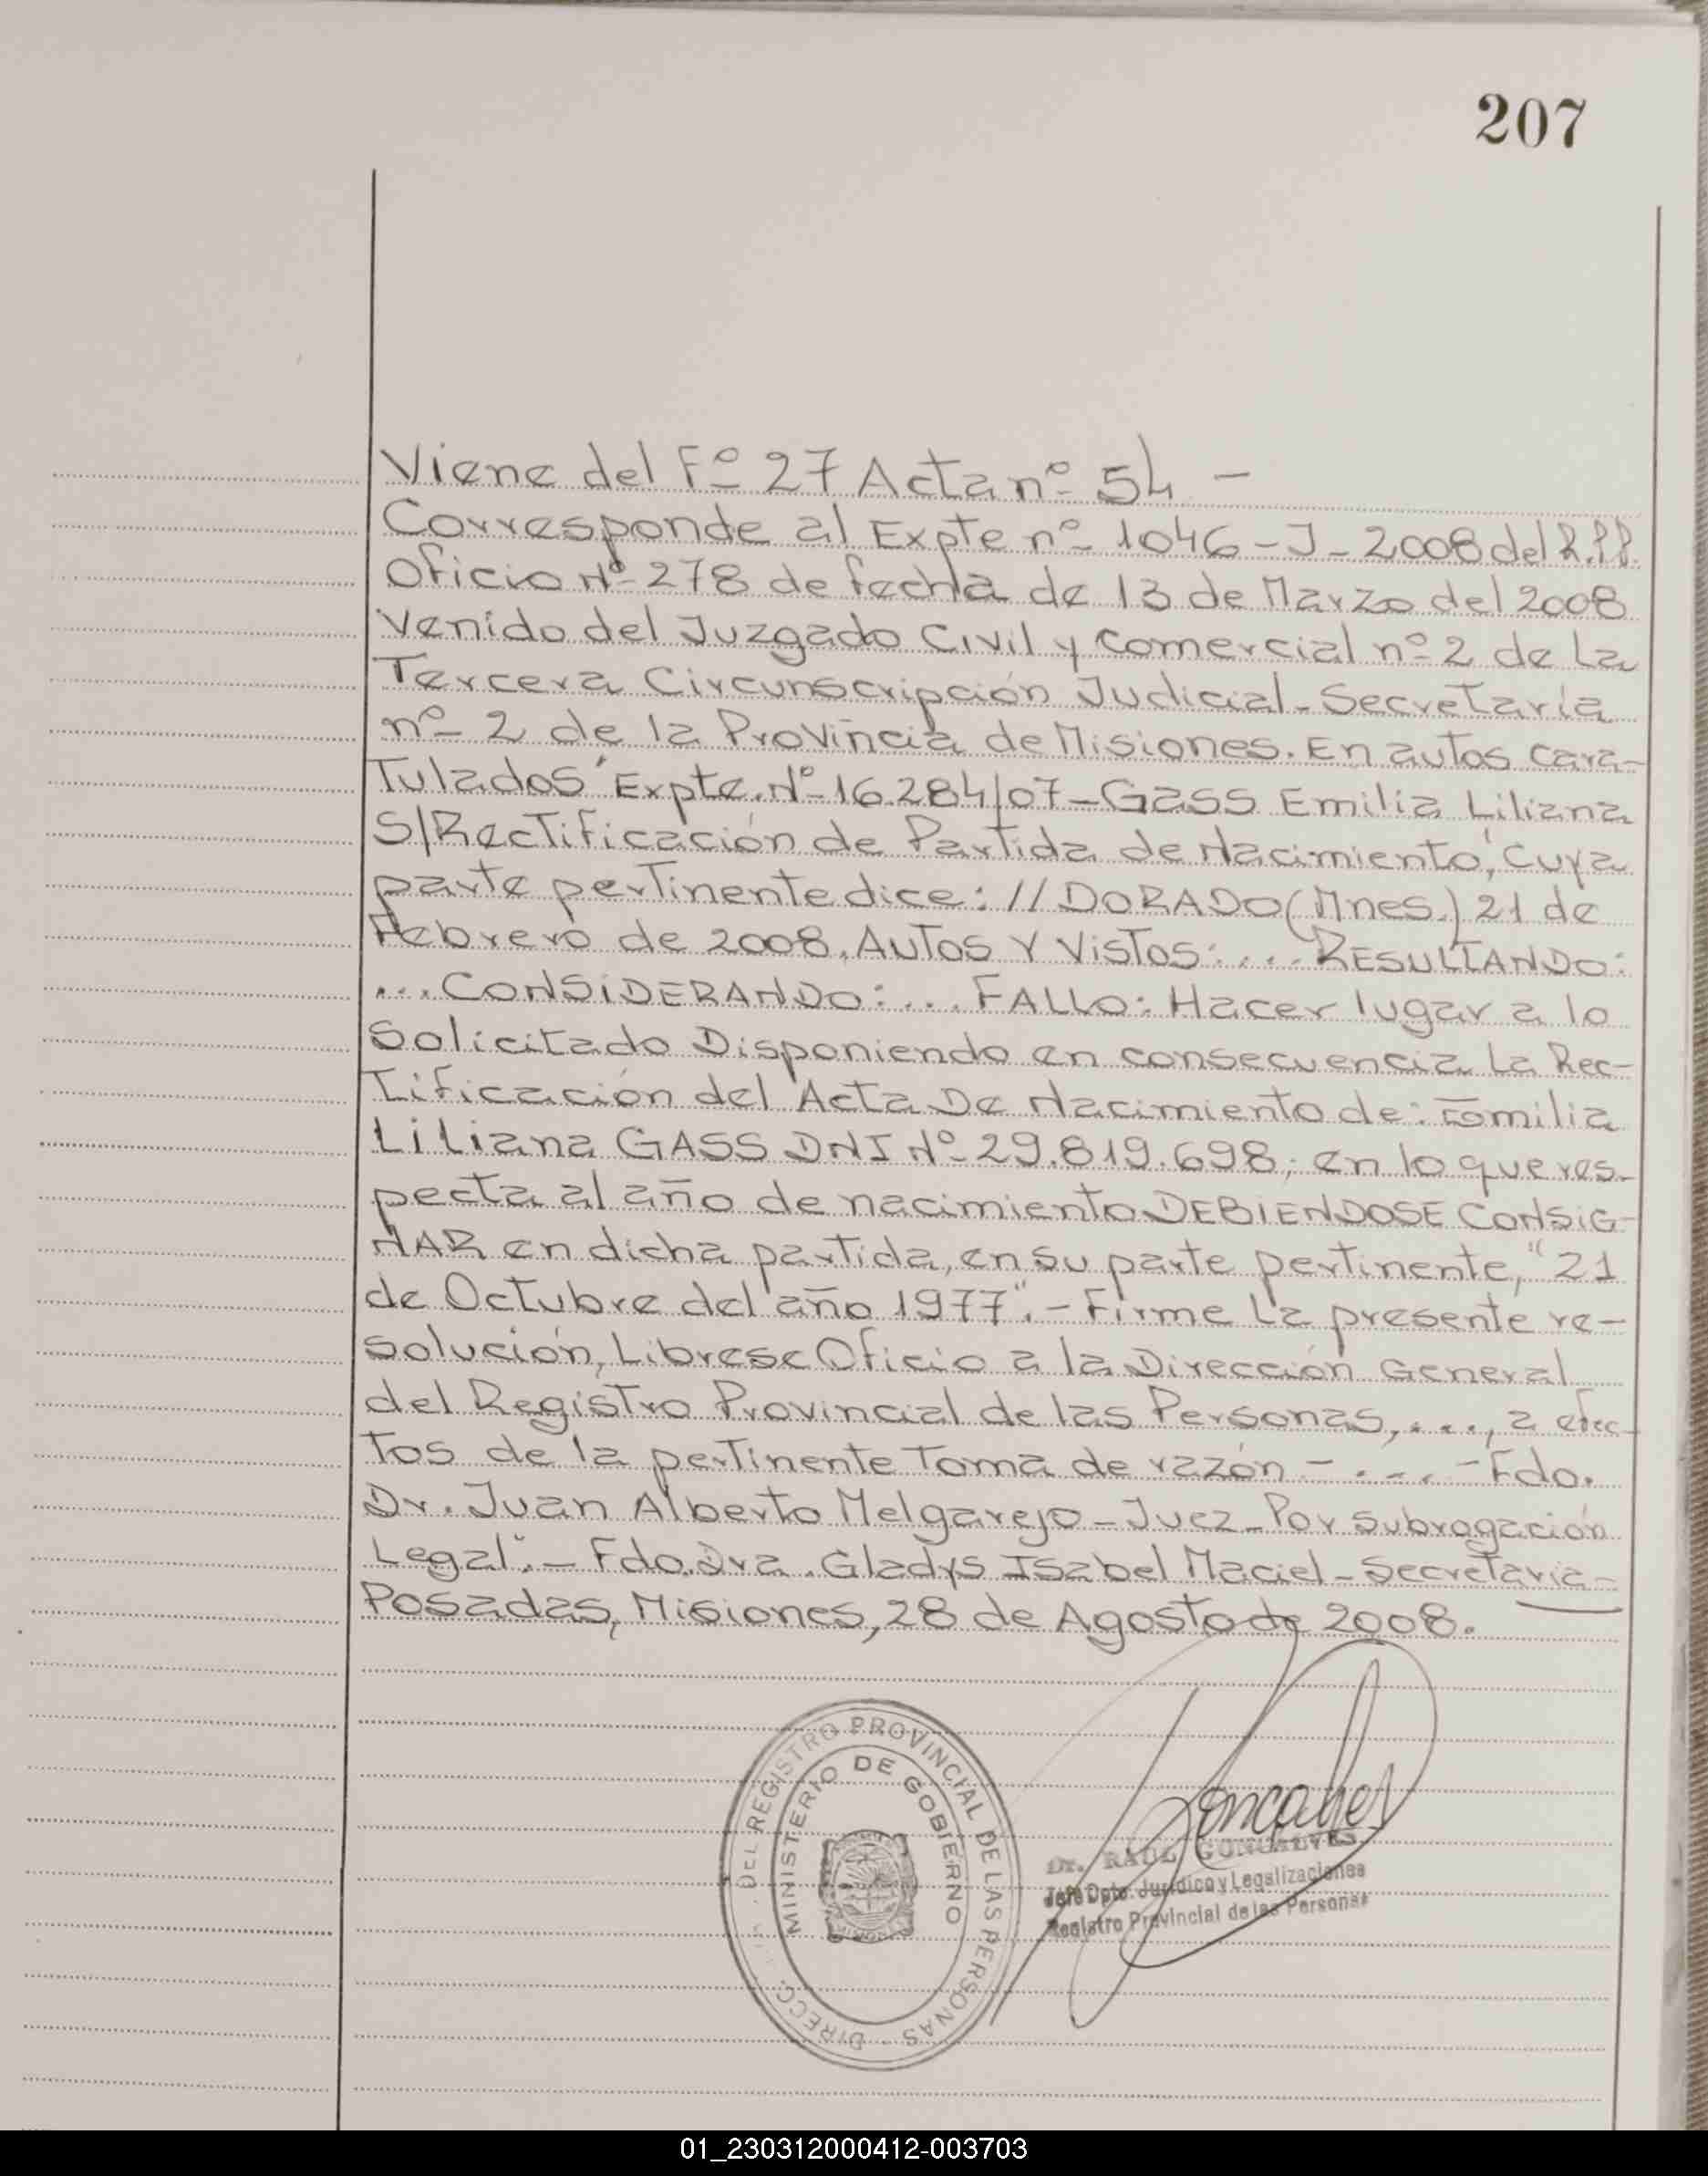 207
Viene del Fº 27 Acta nº 54 -
Corresponde al Expte nº 1046-J-2008 del R.P.P.
Oficio Nº 278 de fecha de 13 de Marzo del 2008
Venido del Juzgado Civil y Comercial nº 2 de La
Tercera Circunscripción Judicial - Secretaría
nº 2 de la Provincia de Misiones. En autos cara-
Tulados "Expte. Nº 16.284/07 - Gass Emilia Liliana
S/Rectificación de Partida de Nacimiento", Cuya
parte pertinente dice: // DORADO (Mnes.) 21 de
Febrero de 2008. AUTOS Y VISTOS: .... RESULTANDO:
... CONSIDERANDO: ... FALLO: Hacer lugar a lo
Solicitado Disponiendo en consecuencia La Rec-
Tificación del Acta De Nacimiento de: Emilia
Liliana GASS DNI Nº 29.819.698; en lo que res-
pecta al año de nacimiento DEBIENDOSE CONSIG-
NAR en dicha partida, en su parte pertinente, "21
de Octubre del año 1977". - Firme La presente re-
solución, Librese Oficio a la Dirección General
del Registro Provincial de las Personas, ...., a efec-
Tos de la pertinente Toma de razón - .... - Fdo.
Dr. Juan Alberto Melgarejo - Juez - Por Subrogación
Legal". - Fdo. Dra. Gladys Isabel Maciel - Secretaria -
Posadas, Misiones, 28 de Agosto de 2008.
DIRECC. DEL REGISTRO PROVINCIAL DE LAS PERSONAS
MINISTERIO DE GOBIERNO
Dr. RAUL GONCALVES
Jefe Dpto. Jurídico y Legalizaciones
Registro Provincial de las Personas
01_230312000412-003703